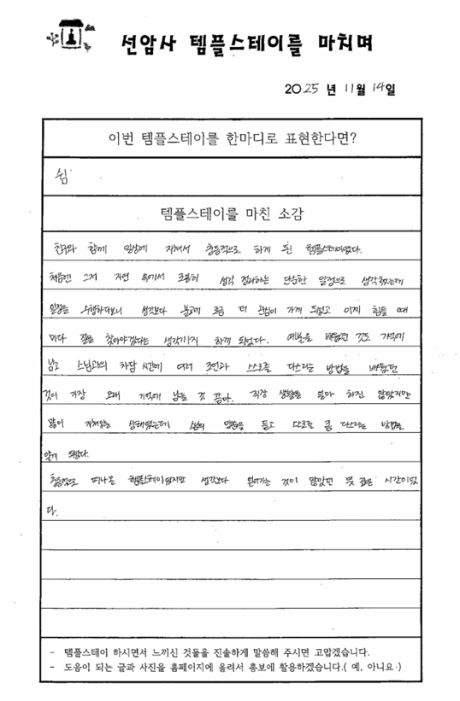 선암사 템플스테이를 마치며
2025 년 11월 14일
이번 템플스테이를 한마디로 표현한다면?
쉼
템플스테이를 마친 소감
친구와 함께 일상에 지쳐서 충동적으로 하게 된 템플스테이였다.
처음엔 그저 자연 속에서 조용히 생각 정리하는 단순한 일정으로 생각했는데
일정을 수행하다보니 생각보다 불교에 조금 더 관심이 가게 되었고 이제 힘들 때
마다 절을 찾아야겠다는 생각까지 하게 되었다. 예불을 배웠던 것도 기억에
남고 스님과의 차담 시간에 여러 조언과 스스로를 다스리는 방법을 배웠던
것이 가장 오래 기억에 남을 것 같다. 직장 생활을 얼마 하진 않았지만
많이 지쳐있는 상태였는데 스님의 말씀을 듣고 스스로를 좀 다스리는 방법을
알게 되었다.
충동적으로 떠나온 템플스테이였지만 생각보다 얻어가는 것이 많았던 뜻 깊은 시간이었
다.
- 템플스테이 하시면서 느끼신 것들을 진솔하게 말씀해 주시면 고맙겠습니다.
- 도움이 되는 글과 사진을 홈페이지에 올려서 홍보에 활용하겠습니다.( 예, 아니요 )